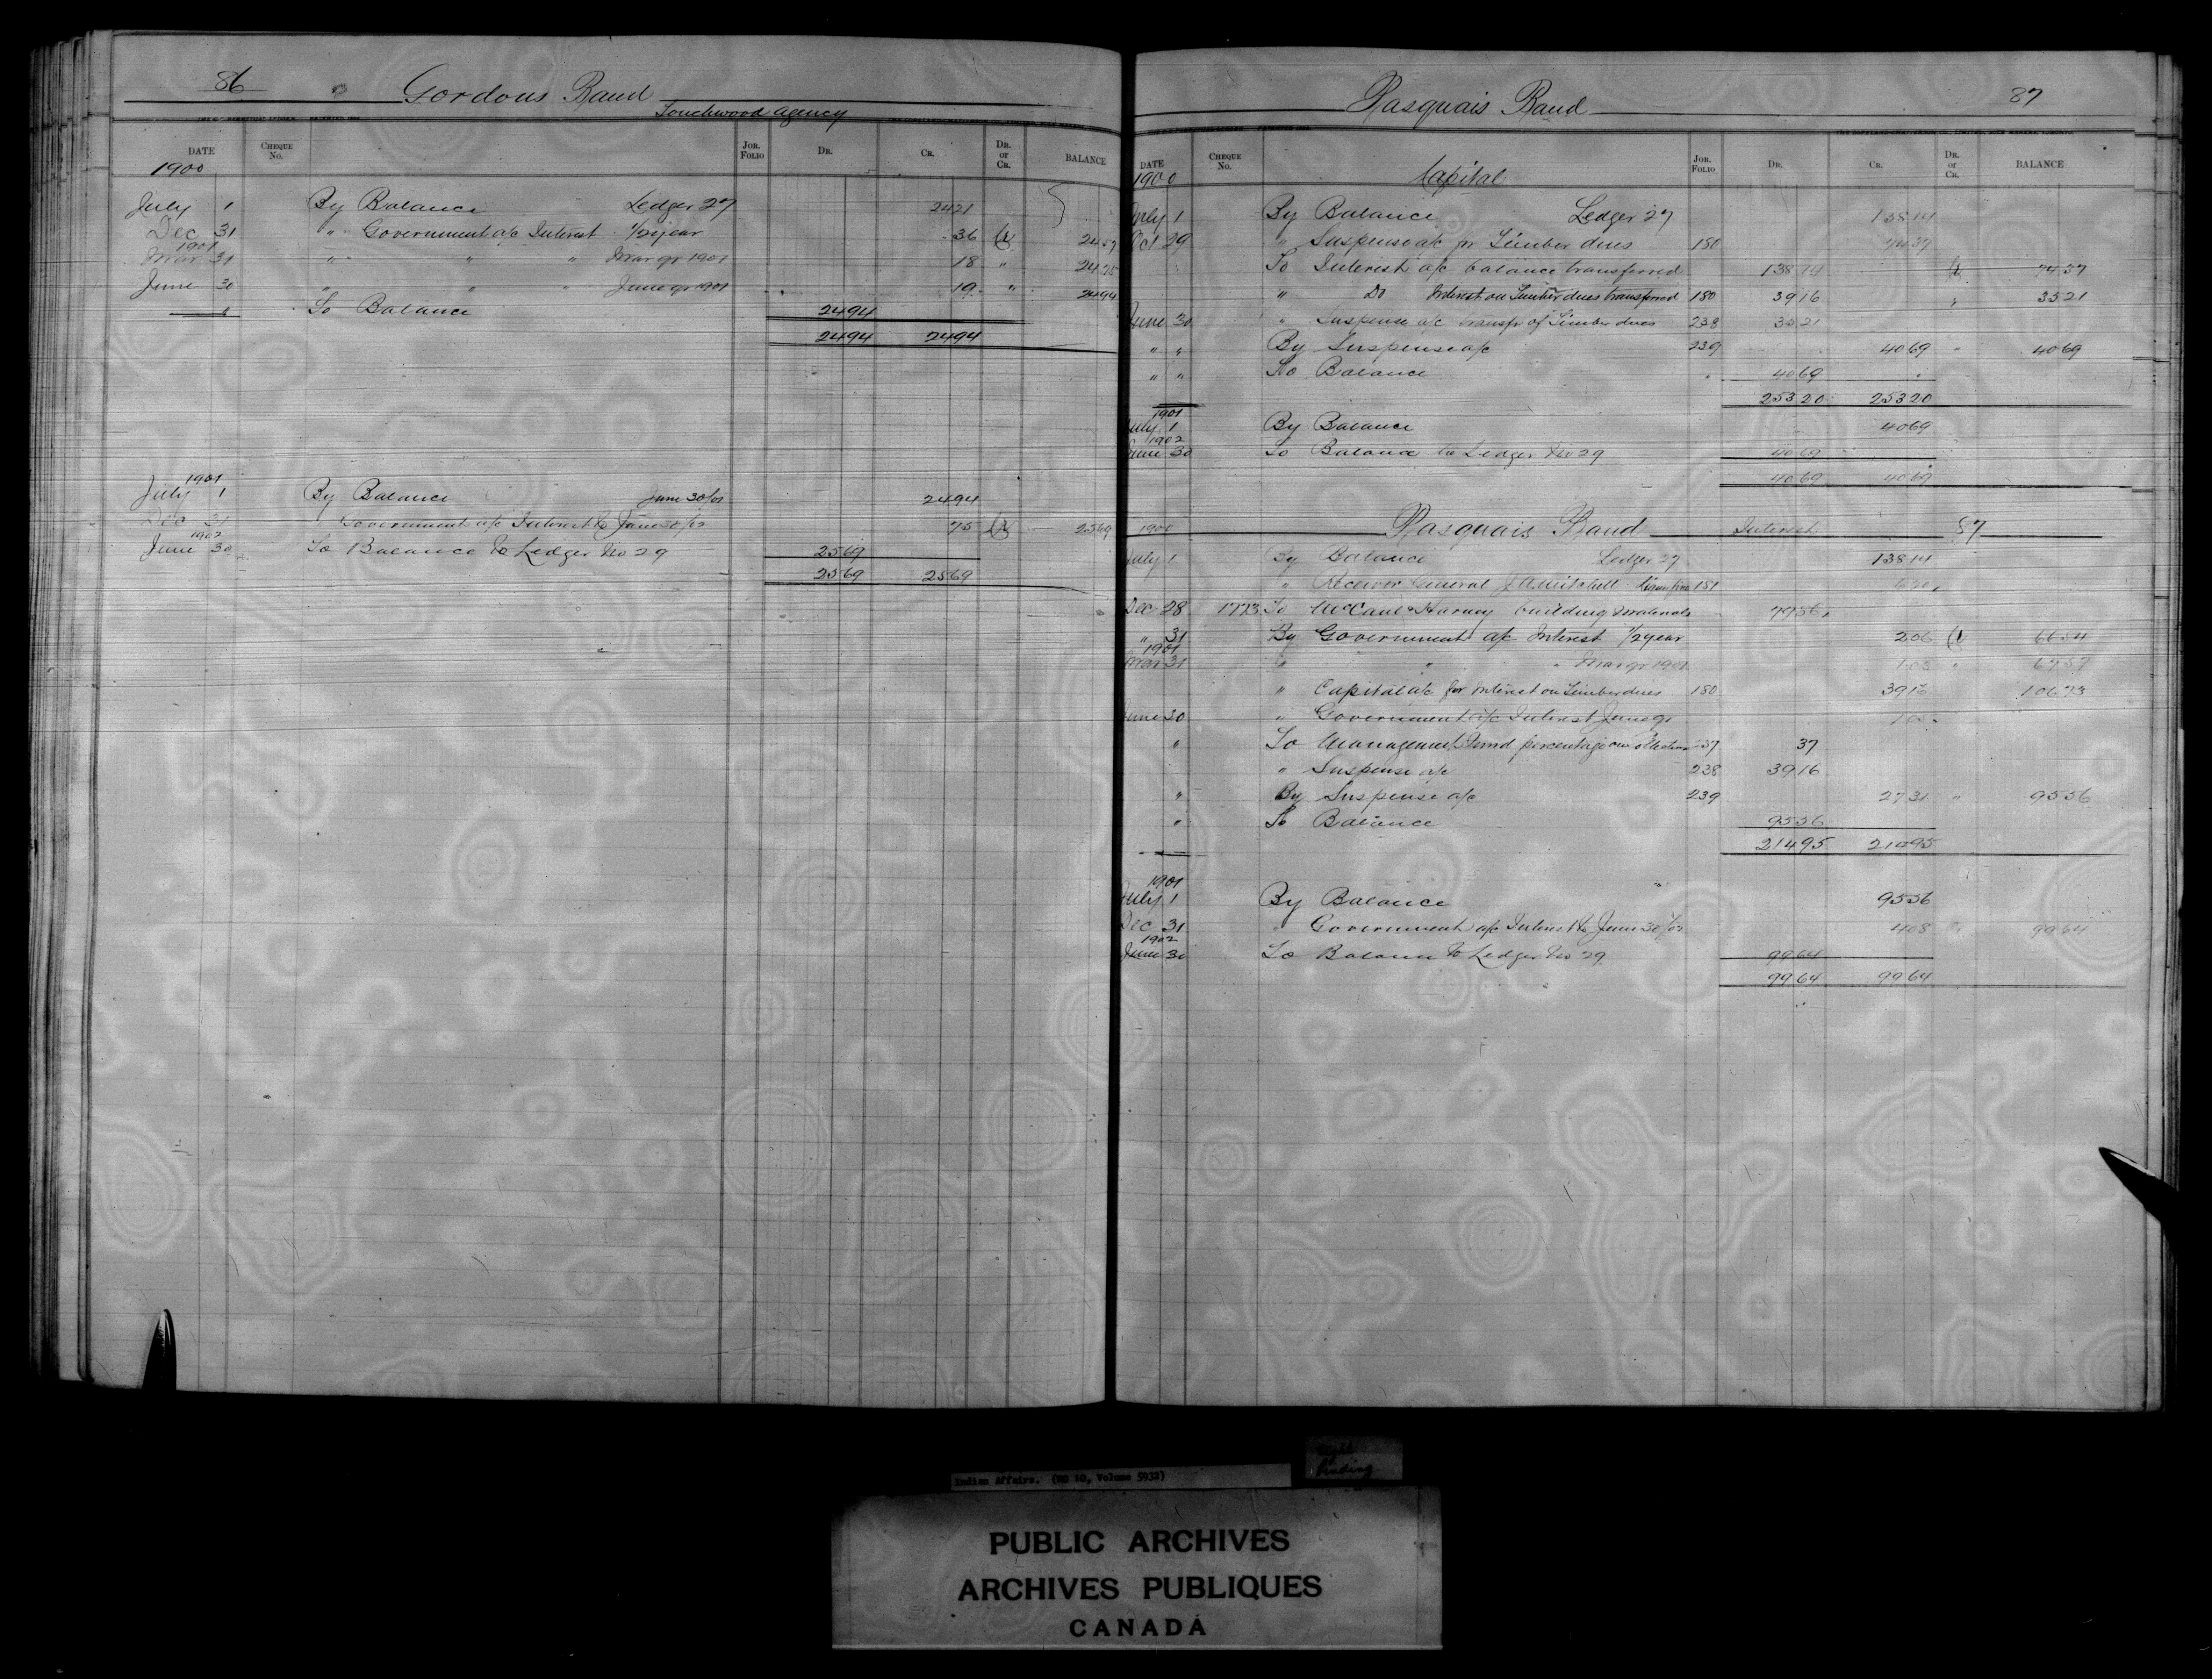 86 Gordons Band
Touchwood Agency
DATE CHEQUE No. JOR. FOLIO DR. CR. DR. or CR. BALANCE
1900
July 1 By Balance Ledger 27 2421
Dec 31 " Government a/c Interest 1/2 year 36 Cr 2457
1901
Mar 31 " " " Mar qr 1901 18 " 2475
June 30 " " " June qr 1901 19 " 2494
" To Balance 2494
2494 2494
1901
July 1 By Balance June 30/01 2494
Dec 31 " Government a/c Interest to June 30/02 75 Cr 2569
1902
June 30 To Balance to Ledger No 29 2569
2569 2569
Pasquais Band 87
DATE CHEQUE No. JOR. FOLIO DR. CR. DR. or CR. BALANCE
1900 Capital
July 1 By Balance Ledger 27 13814
Oct 29 " Suspense a/c for Timber dues 180 7437
To Interest a/c balance transferred 13814 Cr 7437
" Do Interest on Timber dues transferred 180 3916 " 3521
June 30 " Suspense a/c transfr of Timber dues 238 3521
" " By Suspense a/c 239 4069 " 4069
" " To Balance 4069
25320 25320
1901
July 1 By Balance 4069
1902
June 30 To Balance to Ledger No 29 4069
4069 4069
1900 Pasquais Band Interest 87
July 1 By Balance Ledger 27 13814
" Receiver General J A Mitchell Liquor fine 181 620
Dec 28 1773 To McCaul & Harvey building materials 7986
" 31 By Government a/c Interest 1/2 year 206 Cr 6654
1901
Mar 31 " " " Mar qr 1901 103 " 6757
" Capital a/c for Interest on Timber dues 180 3916 10673
June 30 " Government a/c Interest June qr
" To Management Fund percentage on collections 237 37
" Suspense a/c 238 3916
" By Suspense a/c 239 2731 " 9556
" To Balance 9556
21495 21495
1901
July 1 By Balance 9556
Dec 31 " Government a/c Interest to June 30/02 408 Cr 9964
1902
June 30 To Balance to Ledger No 29 9964
9964 9964
Indian Affairs. (RG 10, Volume 5932)
Tight
Binding
PUBLIC ARCHIVES
ARCHIVES PUBLIQUES
CANADA